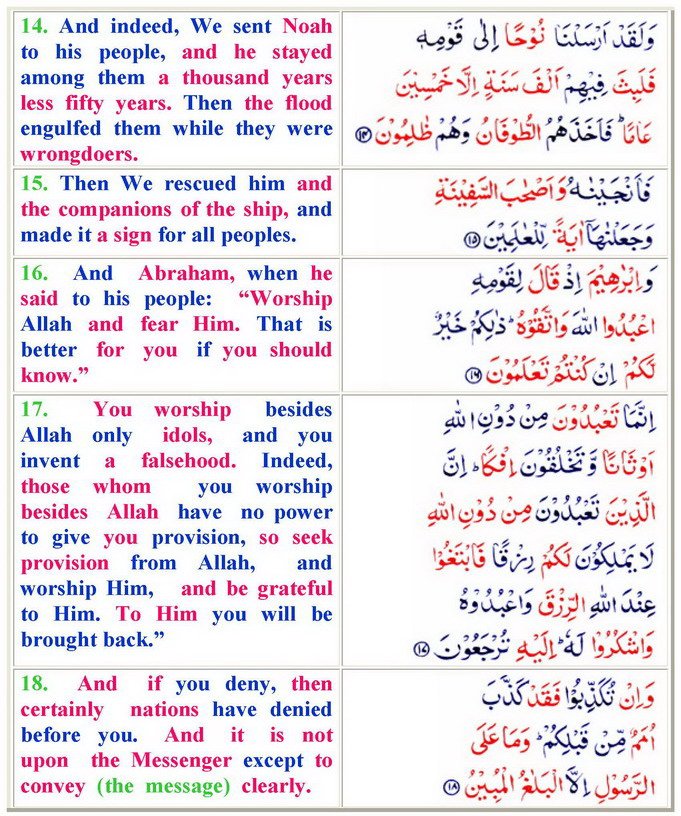 14. And indeed, We sent Noah
to his people, and he stayed
among them a thousand years
less fifty years. Then the flood
engulfed them while they were
wrongdoers.
وَلَقَدْ اَرْسَلْنَا نُوْحًا اِلٰى قَوْمِهٖ
فَلَبِثَ فِيْهِمْ اَلْفَ سَنَةٍ اِلَّا خَمْسِيْنَ
عَامًا ؕ فَاَخَذَهُمُ الطُّوْفَانُ وَهُمْ ظٰلِمُوْنَ ۱۴
15. Then We rescued him and
the companions of the ship, and
made it a sign for all peoples.
فَاَنْجَيْنٰهُ وَاَصْحٰبَ السَّفِيْنَةِ
وَجَعَلْنٰهَاۤ اٰيَةً لِّلْعٰلَمِيْنَ ۱۵
16. And Abraham, when he
said to his people: “Worship
Allah and fear Him. That is
better for you if you should
know.”
وَاِبْرٰهِيْمَ اِذْ قَالَ لِقَوْمِهِ
اعْبُدُوا اللّٰهَ وَاتَّقُوْهُ ؕ ذٰلِكُمْ خَيْرٌ
لَّكُمْ اِنْ كُنْتُمْ تَعْلَمُوْنَ ۱۶
17. You worship besides
Allah only idols, and you
invent a falsehood. Indeed,
those whom you worship
besides Allah have no power
to give you provision, so seek
provision from Allah, and
worship Him, and be grateful
to Him. To Him you will be
brought back.”
اِنَّمَا تَعْبُدُوْنَ مِنْ دُوْنِ اللّٰهِ
اَوْثَانًا وَّتَخْلُقُوْنَ اِفْكًا ؕ اِنَّ
الَّذِيْنَ تَعْبُدُوْنَ مِنْ دُوْنِ اللّٰهِ
لَا يَمْلِكُوْنَ لَكُمْ رِزْقًا فَابْتَغُوْا
عِنْدَ اللّٰهِ الرِّزْقَ وَاعْبُدُوْهُ
وَاشْكُرُوْا لَهٗ ؕ اِلَيْهِ تُرْجَعُوْنَ ۱۷
18. And if you deny, then
certainly nations have denied
before you. And it is not
upon the Messenger except to
convey (the message) clearly.
وَاِنْ تُكَذِّبُوْا فَقَدْ كَذَّبَ
اُمَمٌ مِّنْ قَبْلِكُمْ ؕ وَمَا عَلَى
الرَّسُوْلِ اِلَّا الْبَلٰغُ الْمُبِيْنُ ۱۸